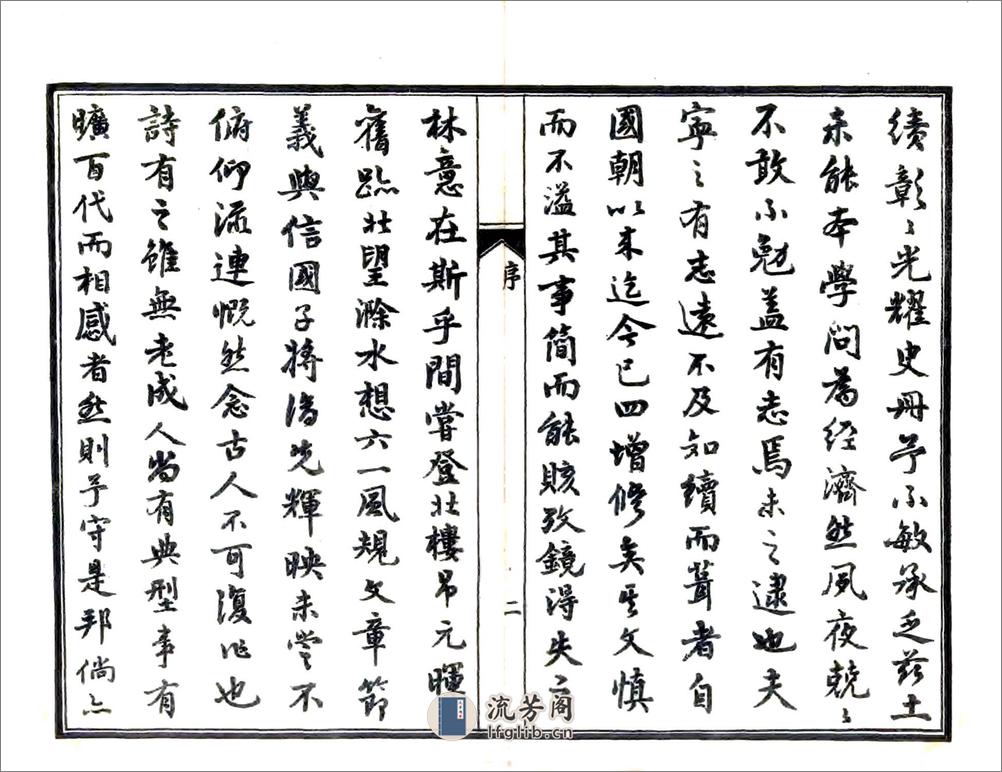 績彰〻光耀史冊予不敏承乏茲土
未能本學問為經濟然夙夜兢〻
不敢不勉蓋有志焉未之逮也夫
寧之有志遠不及知續而葺者自
國朝以来迄今已四增修矣其文慎
而不溢其事簡而能賅攷鏡得失之
林意在斯乎間嘗登北樓吊元暉
舊跡北望滁水想六一風規文章節
義與信國子將潯光輝映未嘗不
俯仰流連慨然念古人不可復作也
詩有之雖無老成人尚有典型事有
曠百代而相感者然則予守是邦倘亦
序
二
流芳阁
lfglib.cn